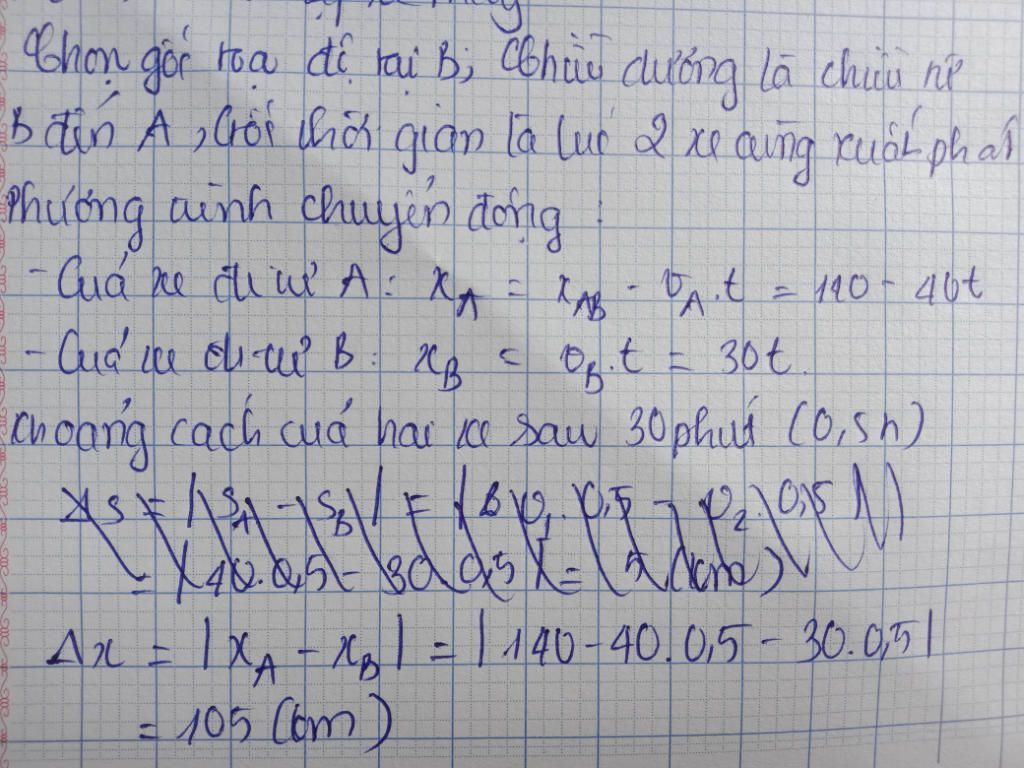 Chọn gốc tọa độ tại B, Chiều dương là chiều từ
B đến A, Gốc thời gian là lúc 2 xe cùng xuất phát
Phương trình chuyển động :
- Của xe đi từ A : x_A = x_AB - v_A.t = 140 - 40t
- Của xe đi từ B : x_B = v_B.t = 30t.
Khoảng cách của hai xe sau 30 phút (0,5h)
Δs = |S_A - S_B| = | v_1.0,5 - v_2.0,5 |
= |40.0,5 - 30.0,5| = 5 (km)
Δx = |x_A - x_B| = |140 - 40.0,5 - 30.0,5|
= 105 (km)